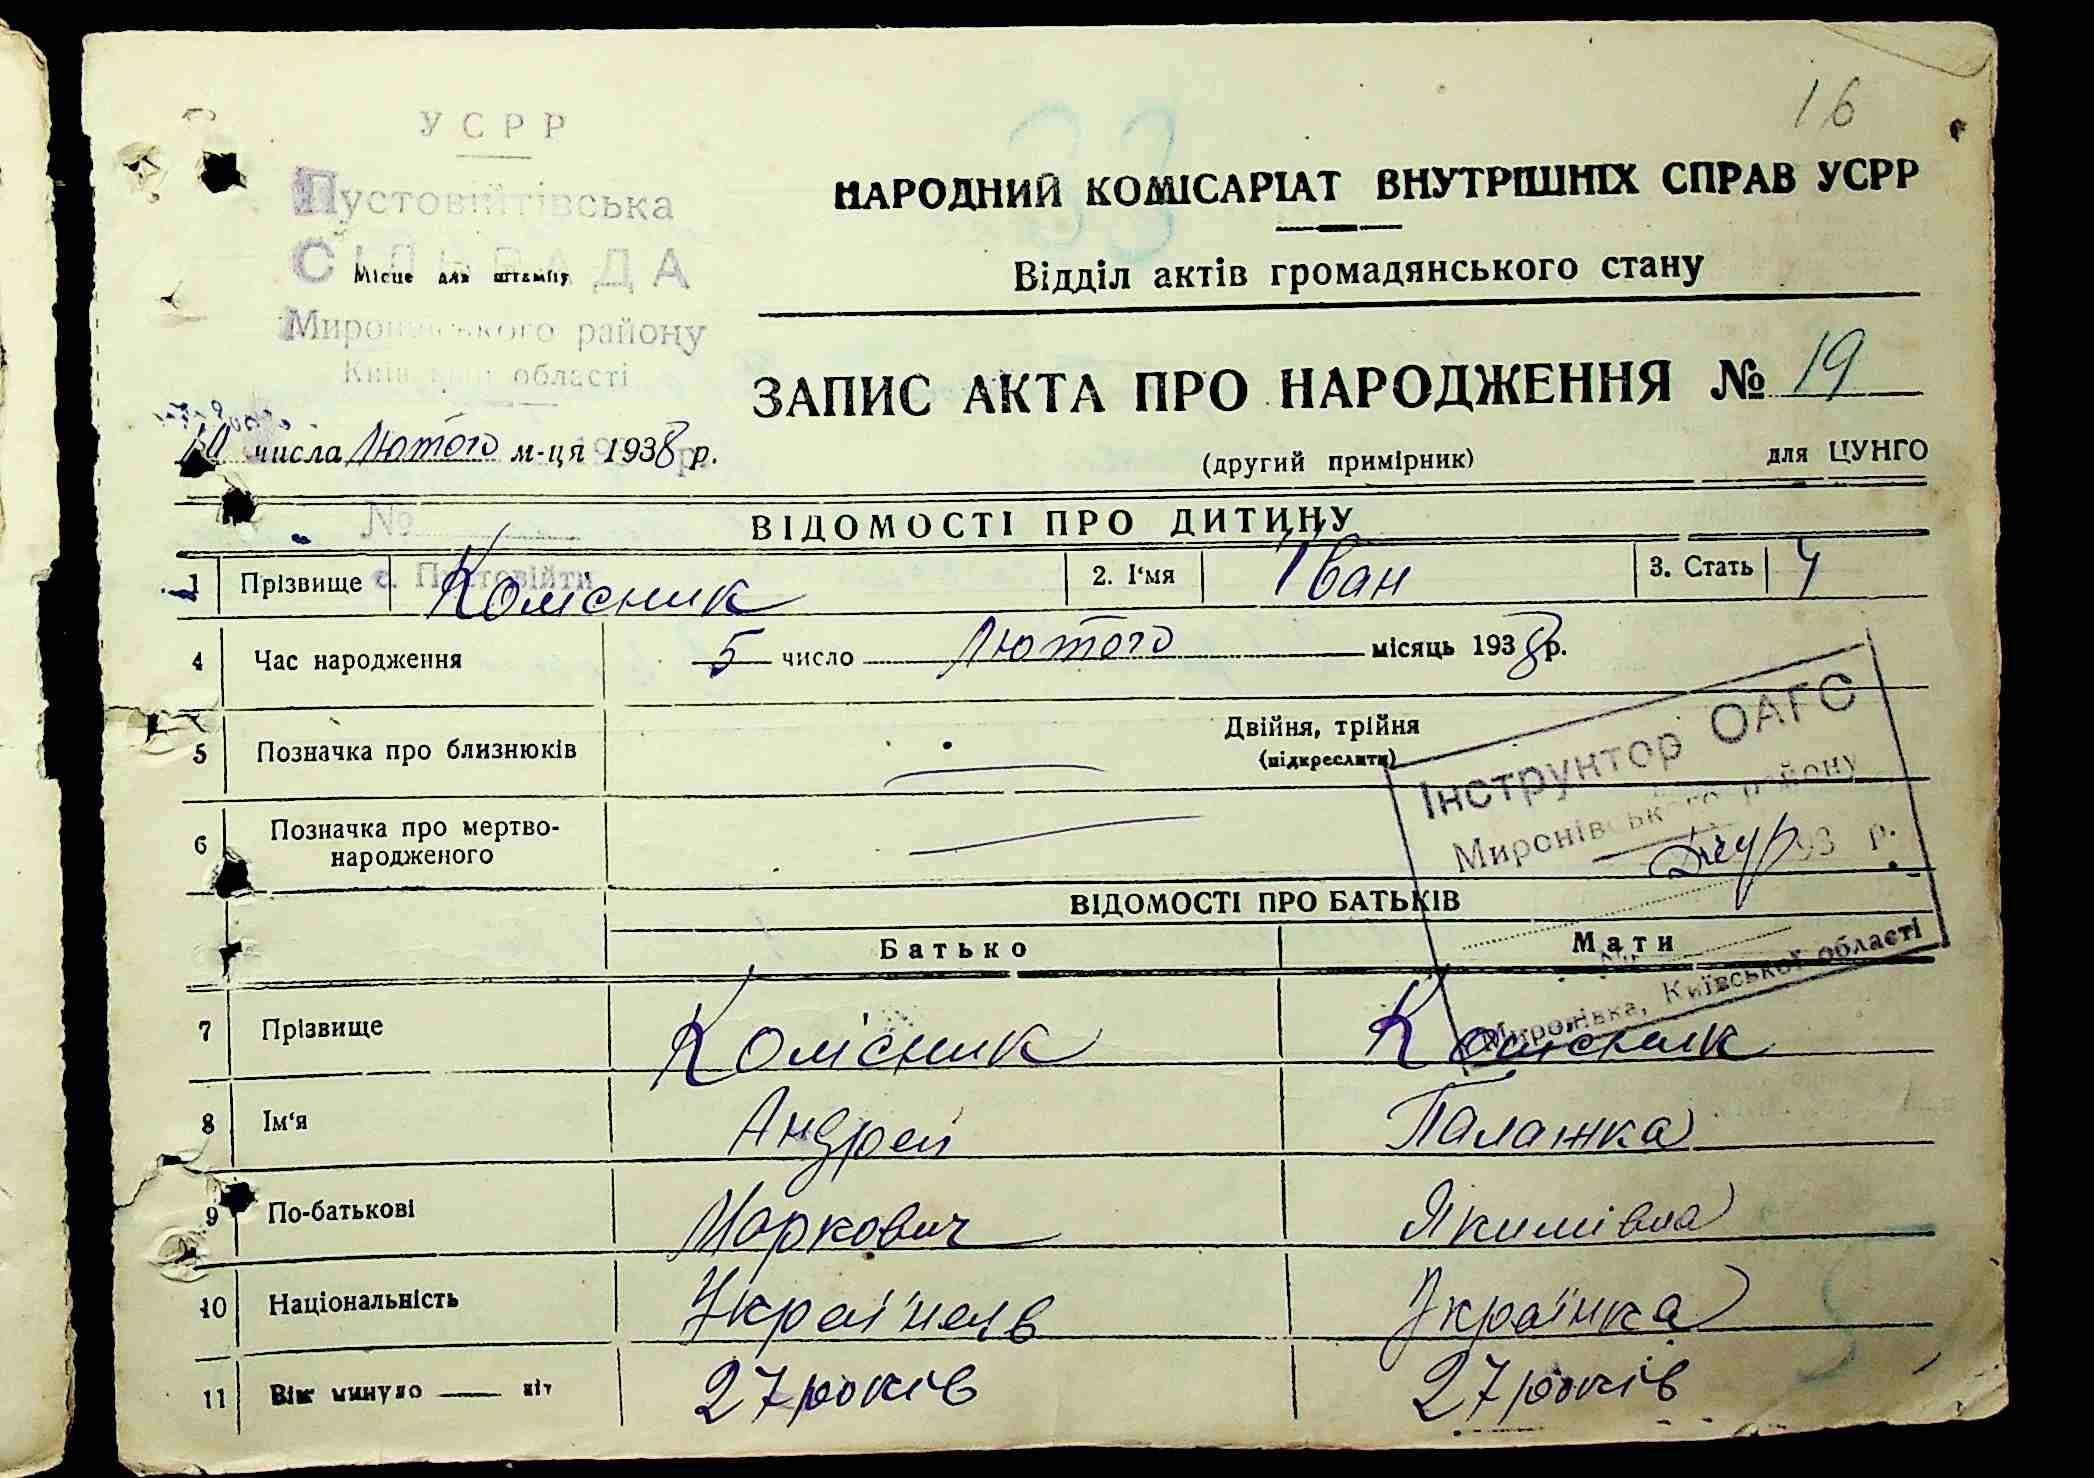 16
33
УСРР
Пустовійтівська
СІЛЬРАДА
Місце для штампу
Миронівського району
Київської області
НАРОДНИЙ КОМІСАРІАТ ВНУТРІШНІХ СПРАВ УСРР
Відділ актів громадянського стану
ЗАПИС АКТА ПРО НАРОДЖЕННЯ № 19
10 числа Лютого м-ця 1938 р.
(другий примірник) для ЦУНГО
№
с. Пустовійти
ВІДОМОСТІ ПРО ДИТИНУ
1 Прізвище Колісник 2. І'мя Іван 3. Стать Ч
4 Час народження 5 число Лютого місяць 1938 р.
5 Позначка про близнюків Двійня, трійня
(підкреслити)
6 Позначка про мертво-
народженого
Інструктор ОАГС
Миронівського району
193 р.
м. Миронівка, Київської області
ВІДОМОСТІ ПРО БАТЬКІВ
Батько Мати
7 Прізвище Колісник Колісник
8 Ім'я Андрей Палажка
9 По-батькові Маркович Якимівна
10 Національність Українець Українка
11 Вік минуло літ 27 років 27 років